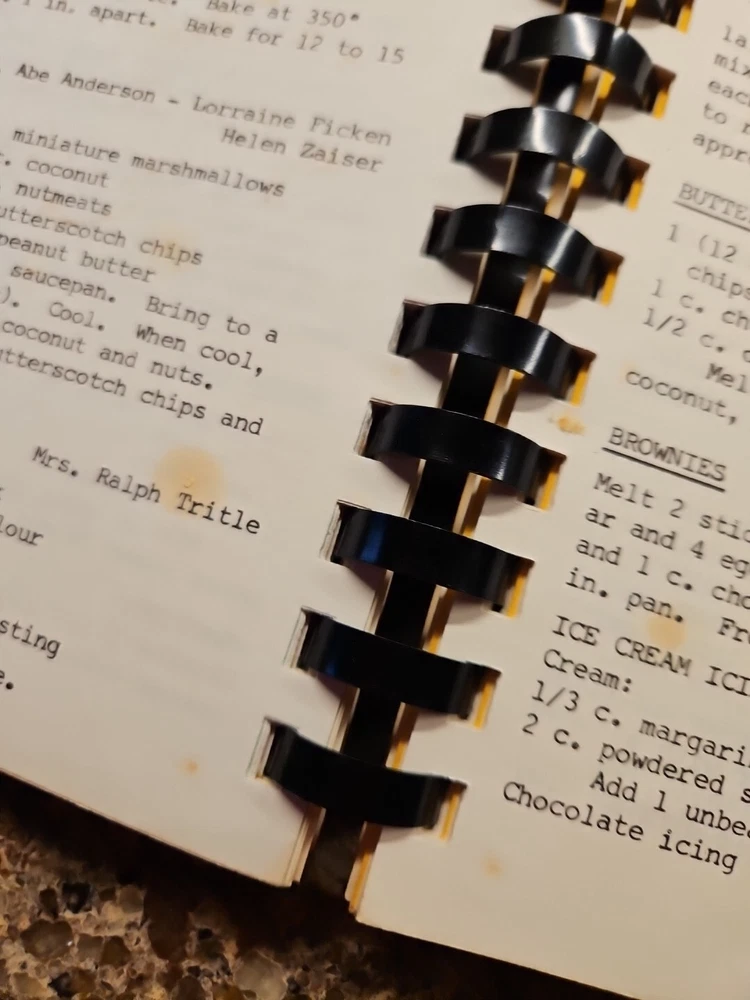 Bake at 350°
in. apart. Bake for 12 to 15
Abe Anderson - Lorraine Ficken
Helen Zaiser
miniature marshmallows
coconut
nutmeats
utterscotch chips
peanut butter
saucepan. Bring to a
). Cool. When cool,
coconut and nuts.
utterscotch chips and
Mrs. Ralph Tritle
lour
sting
e.
la
mix
each
to
appr
BUTTE
1 (12
chips
1 c. ch
1/2 c.
Mel
coconut,
BROWNIES
Melt 2 stic
ar and 4 eg
and 1 c. cho
in. pan. Fr
ICE CREAM ICI
Cream:
1/3 c. margari
2 c. powdered s
Add 1 unbea
Chocolate icing